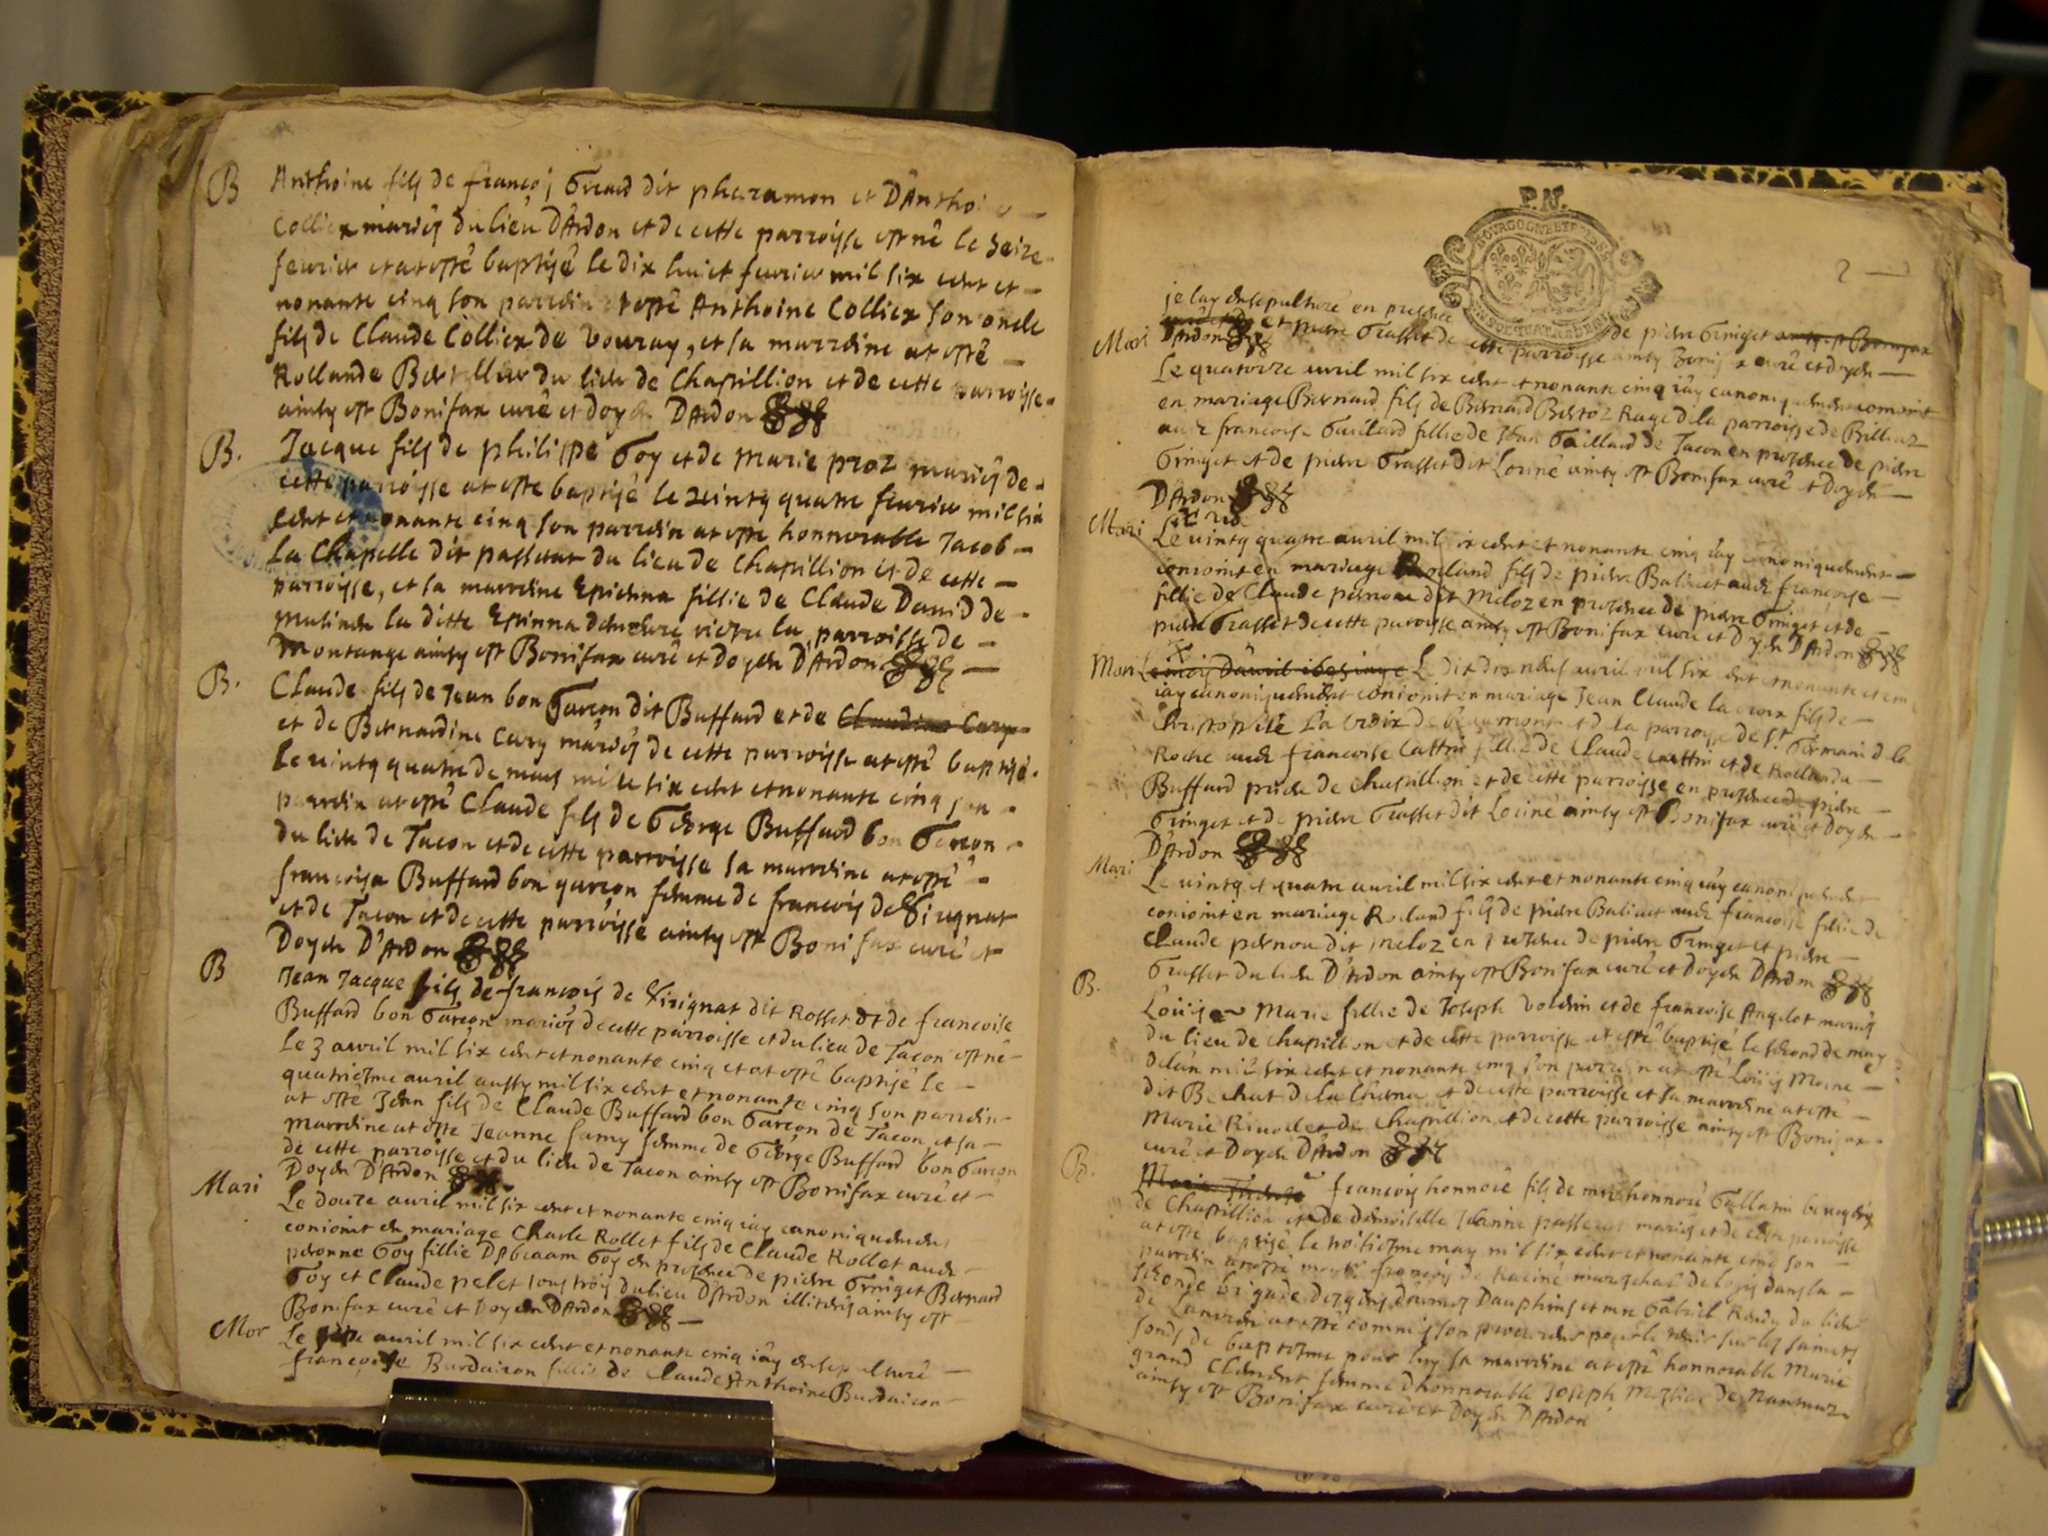 B Anthoine fils de françoj Girard dit pharamon et D'Anthoi
Collier mariés du lieu D'Ardon et de cette parroisse est né le seize
feurier et at esté baptisé le dix huict feurier mil six cent et
nonante cinq son parrdin at esté Anthoine Collier son oncle
fils de Claude Collier de Vouray, et sa marrdine at esté
Rollande du lieu de Chasillion et de cette parroisse
ainsy est Bonifax curé et Doyen D'Ardon
B. Jacque fils de philippe Goy et de Marie proz mariés de
cette parroisse at esté baptisé le vintq quatre feurier mil six
cent et nonante cinq son parrdin at esté honnorable Jacob
La Chapelle dit passerat du lieu de Chasillion et de cette
parroisse, et sa marrdine Epienna fillie de Claude Dauid de
la ditte Epienna riere la parroisse de
Montange ainsy est Bonifax curé et Doyen D'Ardon
B. Claude fils de Jean bon Garçon dit Buffard et de Claudine Cary
et de Bernardine Cary mariés de cette parroisse at esté baptisé
le vintq quatre de mars mille six cent et nonante cinq son
parrdin at esté Claude fils de George Buffard bon Garçon
du lieu de Tacon et de cette parroisse sa marrdine at esté
françoisa Buffard bon garçon femme de françois de Sirignat
et de Tacon et de cette parroisse ainsy est Bonifax curé et
Doyen D'Ardon
B Jean Jacque fils de françois de Sirignat dit Rosset et de francoise
Buffard bon Garçon mariés de cette parroisse et du lieu de Tacon est né
le 3 avril mil six cent et nonante cinq et at esté baptisé le
quatriesme auril aussy mil six cent et nonante cinq son parrdin
at esté Jean fils de Claude Buffard bon Garçon de Tacon et sa
marrdine at esté Jeanne famy femme de George Buffard bon Garçon
de cette parroisse et du lieu de Tacon ainsy est Bonifax curé et
Doyen D'Ardon
Mari Le douze auril mil six cent et nonante cinq i'ay canoniquement
conioint en mariage Charle Rollet fils de Claude Rollet auec
peronne Goy fillie D'abraam Goy en presence de pierre Gringet Bernard
Goy et Claude pelet tous trois du lieu D'Ardon illiterés ainsy est
Bonifax curé et Doyen D'Ardon
Mor Le auril mil six cent et nonante cinq i'ay ensepulturé
françoise Burdairon fillie de Claude Anthoine Burdairon
2
P.N.
je l'ay ensepulturé en presence de pierre Gringet
D'Ardon et pierre Grasset de cette parroisse ainsy Bonifax curé et Doyen
Mari Le quatorze auril mil six cent et nonante cinq i'ay canoniquement conioint
en mariage Bernard fils de Bernard Ruge de la parroisse de Billiaz
auec francoise Gaillard fillie de Jean Gaillard de Tacon en presence de pierre
Gringet et de pierre Grasset dit Loriné ainsy est Bonifax curé et Doyen
D'Ardon
Mari Le vintq quatre auril mil six cent et nonante cinq i'ay canoniquement
conioint en mariage Roland fils de pierre Baliuet auec françoise
fillie de Claude pernou dit Meloz en presence de pierre Gringet et de
pierre Grasset de cette parroisse ainsy est Bonifax curé et Doyen D'Ardon
Mari Le dit dix neuf auril mil six cent et nonante et cinq
i'ay canoniquement conioint en mariage Jean Claude la croix fils de
Christophle La Croix de beaumont et de la parroisse de St Germani d la
Roche auec francoise Cattin fillie de Claude Cattin et de Rollanda
Buffard de Chasillion et de cette parroisse en presence de pierre
Gringet et de pierre Grasset dit Loriné ainsy est Bonifax curé et Doyen
D'Ardon
Mari Le vintq et quatre auril mil six cent et nonante cinq i'ay canoniquement
conioint en mariage Roland fils de pierre Baliuet auec francoise fillie de
Claude pernou dit Meloz en presence de pierre Gringet et pierre
Grasset du lieu D'Ardon ainsy est Bonifax curé et Doyen D'Ardon
B. Loüise Marie fillie de Joseph et de francoise Angelot mariés
du lieu de Chasillion et de cette parroisse at esté baptisé le second de may
de l'an mil six cent et nonante cinq son parrdin at esté Loüis Moine
dit Bechat de la Charna et de cette parroisse et sa marrdine at esté
Marie Riuollet de Chasillion et de cette parroisse ainsy est Bonifax
curé et Doyen D'Ardon
B. françois honnoré fils de mre honnoré Gallatin
de Chasillion et de demoiselle passerat mariés et de cette parroisse
at esté baptisé le troisiesme may mil six cent et nonante cinq son
parrdin at esté françois de Raciné mareschal de logis dans la
seconde brigade des gens d'armes Dauphins et mre Gabriel du lieu
de at esté commis son procureur pour le tenir sur les saints
fonds de baptesme pour luy sa marrdine at esté honnorable Marie
grand Clement femme d'honnorable Joseph de Nantuaz
ainsy est Bonifax curé et Doyen D'Ardon